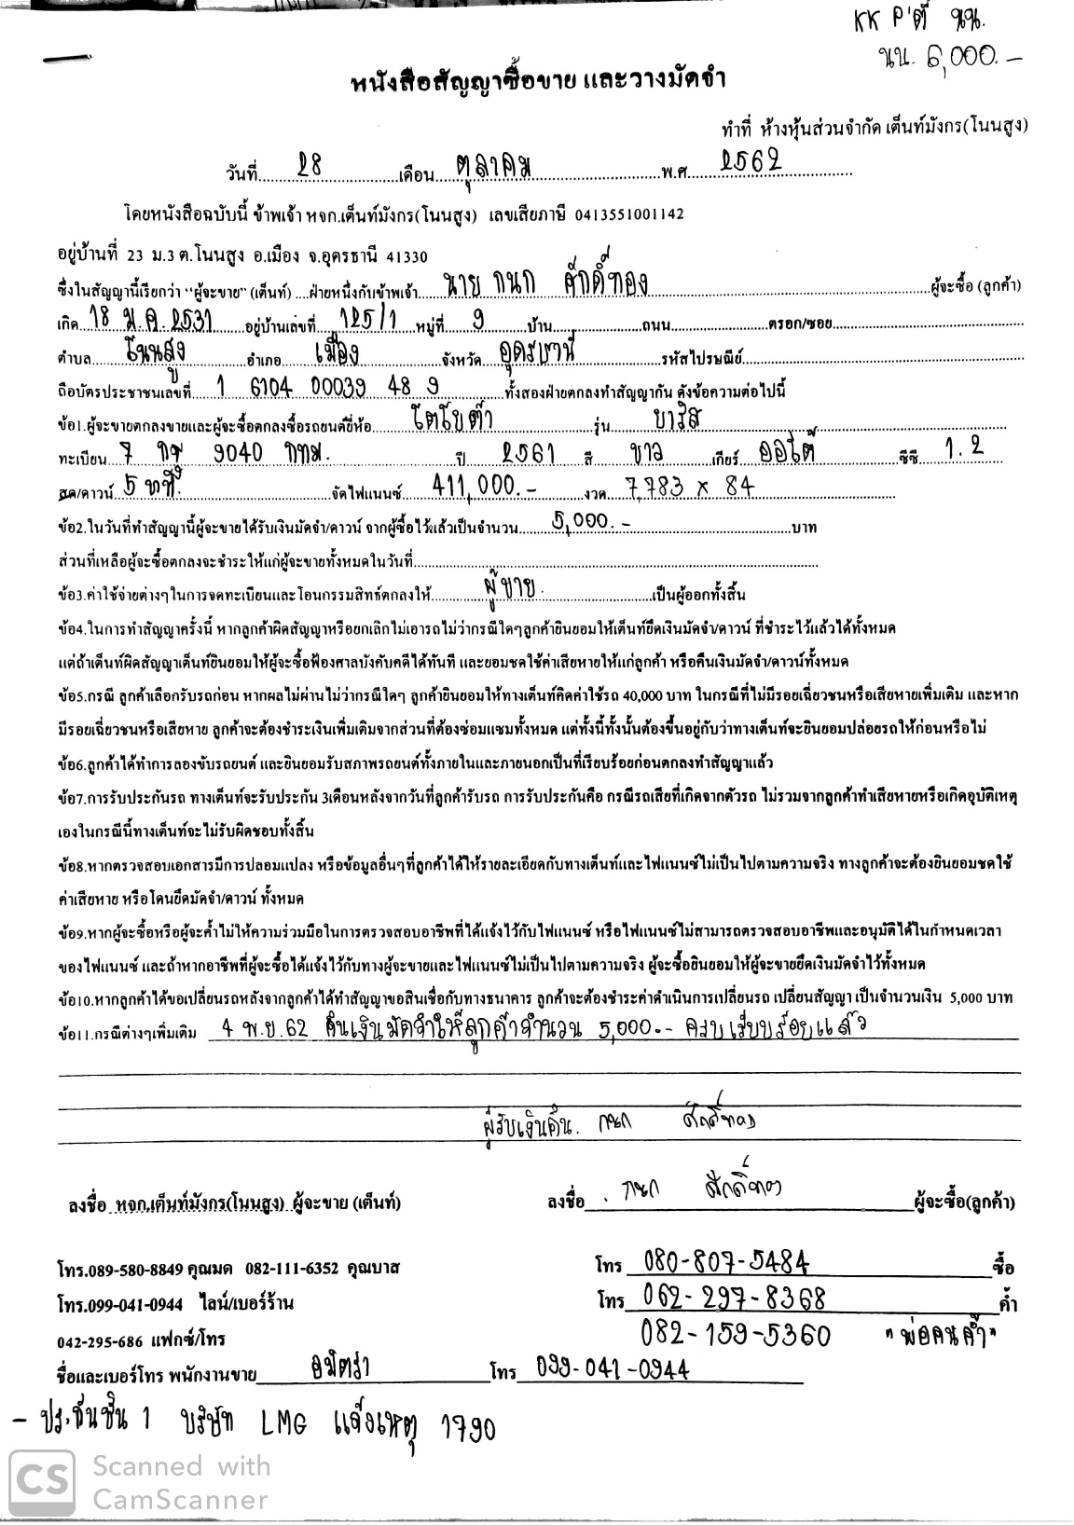 KK P'ตี๋ นน.
นน. 6,000.-
หนังสือสัญญาซื้อขาย และวางมัดจำ
ทำที่ ห้างหุ้นส่วนจำกัด เต็นท์มังกร(โนนสูง)
วันที่ 28 เดือน ตุลาคม พ.ศ. 2562
โดยหนังสือฉบับนี้ ข้าพเจ้า หจก.เต็นท์มังกร(โนนสูง) เลขเสียภาษี 0413551001142
อยู่บ้านที่ 23 ม.3 ต.โนนสูง อ.เมือง จ.อุดรธานี 41330
ซึ่งในสัญญานี้เรียกว่า "ผู้จะขาย" (เต็นท์) ....ฝ่ายหนึ่งกับข้าพเจ้า นาย กนก ศักดิ์ทอง ผู้จะซื้อ (ลูกค้า)
เกิด 18 ม.ค. 2531 อยู่บ้านเลขที่ 125/1 หมู่ที่ 9 บ้าน ถนน ตรอก/ซอย
ตำบล โนนสูง อำเภอ เมือง จังหวัด อุดรธานี รหัสไปรษณีย์
ถือบัตรประชาชนเลขที่ 1 6104 00039 48 9 ทั้งสองฝ่ายตกลงทำสัญญากัน ดังข้อความต่อไปนี้
ข้อ1.ผู้จะขายตกลงขายและผู้จะซื้อตกลงซื้อรถยนต์ยี่ห้อ โตโยต้า รุ่น ยาริส
ทะเบียน 7 กฬ 9040 กทม. ปี 2561 สี ขาว เกียร์ ออโต้ ซีซี 1.2
สด/ดาวน์ 5 ที่นั่ง จัดไฟแนนซ์ 411,000.- งวด 7,783 x 84
ข้อ2.ในวันที่ทำสัญญานี้ผู้จะขายได้รับเงินมัดจำ/ดาวน์ จากผู้ซื้อไว้แล้วเป็นจำนวน 5,000.- บาท
ส่วนที่เหลือผู้จะซื้อตกลงจะชำระให้แก่ผู้จะขายทั้งหมดในวันที่
ข้อ3.ค่าใช้จ่ายต่างๆในการจดทะเบียนและโอนกรรมสิทธิ์ตกลงให้ ผู้ขาย. เป็นผู้ออกทั้งสิ้น
ข้อ4.ในการทำสัญญาครั้งนี้ หากลูกค้าผิดสัญญาหรือยกเลิกไม่เอารถไม่ว่ากรณีใดๆลูกค้ายินยอมให้เต็นท์ยึดเงินมัดจำ/ดาวน์ ที่ชำระไว้แล้วได้ทั้งหมด
แต่ถ้าเต็นท์ผิดสัญญาเต็นท์ยินยอมให้ผู้จะซื้อฟ้องศาลบังคับคดีได้ทันที และยอมชดใช้ค่าเสียหายให้แก่ลูกค้า หรือคืนเงินมัดจำ/ดาวน์ทั้งหมด
ข้อ5.กรณี ลูกค้าเลือกรับรถก่อน หากผลไม่ผ่านไม่ว่ากรณีใดๆ ลูกค้ายินยอมให้ทางเต็นท์คิดค่าใช้รถ 40,000 บาท ในกรณีที่ไม่มีรอยเฉี่ยวชนหรือเสียหายเพิ่มเติม และหาก
มีรอยเฉี่ยวชนหรือเสียหาย ลูกค้าจะต้องชำระเงินเพิ่มเติมจากส่วนที่ต้องซ่อมแซมทั้งหมด แต่ทั้งนี้ทั้งนั้นต้องขึ้นอยู่กับว่าทางเต็นท์จะยินยอมปล่อยรถให้ก่อนหรือไม่
ข้อ6.ลูกค้าได้ทำการลองขับรถยนต์ และยินยอมรับสภาพรถยนต์ทั้งภายในและภายนอกเป็นที่เรียบร้อยก่อนตกลงทำสัญญาแล้ว
ข้อ7.การรับประกันรถ ทางเต็นท์จะรับประกัน 3เดือนหลังจากวันที่ลูกค้ารับรถ การรับประกันคือ กรณีรถเสียที่เกิดจากตัวรถ ไม่รวมจากลูกค้าทำเสียหายหรือเกิดอุบัติเหตุ
เองในกรณีนี้ทางเต็นท์จะไม่รับผิดชอบทั้งสิ้น
ข้อ8.หากตรวจสอบเอกสารมีการปลอมแปลง หรือข้อมูลอื่นๆที่ลูกค้าได้ให้รายละเอียดกับทางเต็นท์และไฟแนนซ์ไม่เป็นไปตามความจริง ทางลูกค้าจะต้องยินยอมชดใช้
ค่าเสียหาย หรือโดนยึดมัดจำ/ดาวน์ ทั้งหมด
ข้อ9.หากผู้จะซื้อหรือผู้จะค้ำไม่ให้ความร่วมมือในการตรวจสอบอาชีพที่ได้แจ้งไว้กับไฟแนนซ์ หรือไฟแนนซ์ไม่สามารถตรวจสอบอาชีพและอนุมัติได้ในกำหนดเวลา
ของไฟแนนซ์ และถ้าหากอาชีพที่ผู้จะซื้อได้แจ้งไว้กับทางผู้จะขายและไฟแนนซ์ไม่เป็นไปตามความจริง ผู้จะซื้อยินยอมให้ผู้จะขายยึดเงินมัดจำไว้ทั้งหมด
ข้อ10.หากลูกค้าได้ขอเปลี่ยนรถหลังจากลูกค้าได้ทำสัญญาขอสินเชื่อกับทางธนาคาร ลูกค้าจะต้องชำระค่าดำเนินการเปลี่ยนรถ เปลี่ยนสัญญา เป็นจำนวนเงิน 5,000 บาท
ข้อ11.กรณีต่างๆเพิ่มเติม 4 พ.ย.62 คืนเงินมัดจำให้ลูกค้าจำนวน 5,000.- ครบเรียบร้อยแล้ว
ผู้รับเงินคืน. กนก ศักดิ์ทอง
ลงชื่อ หจก.เต็นท์มังกร(โนนสูง) ผู้จะขาย (เต็นท์) ลงชื่อ กนก ศักดิ์ทอง ผู้จะซื้อ(ลูกค้า)
โทร.089-580-8849 คุณมด 082-111-6352 คุณบาส โทร 080-807-5484 ซื้อ
โทร.099-041-0944 ไลน์/เบอร์ร้าน โทร 062-297-8368 ค้ำ
042-295-686 แฟกซ์/โทร 082-159-5360 "พ่อคนค้ำ"
ชื่อและเบอร์โทร พนักงานขาย อมิตรา โทร 099-041-0944
- ปร.ชั้นชั้น 1 บริษัท LMG แจ้งเหตุ 1790
CS Scanned with
CamScanner